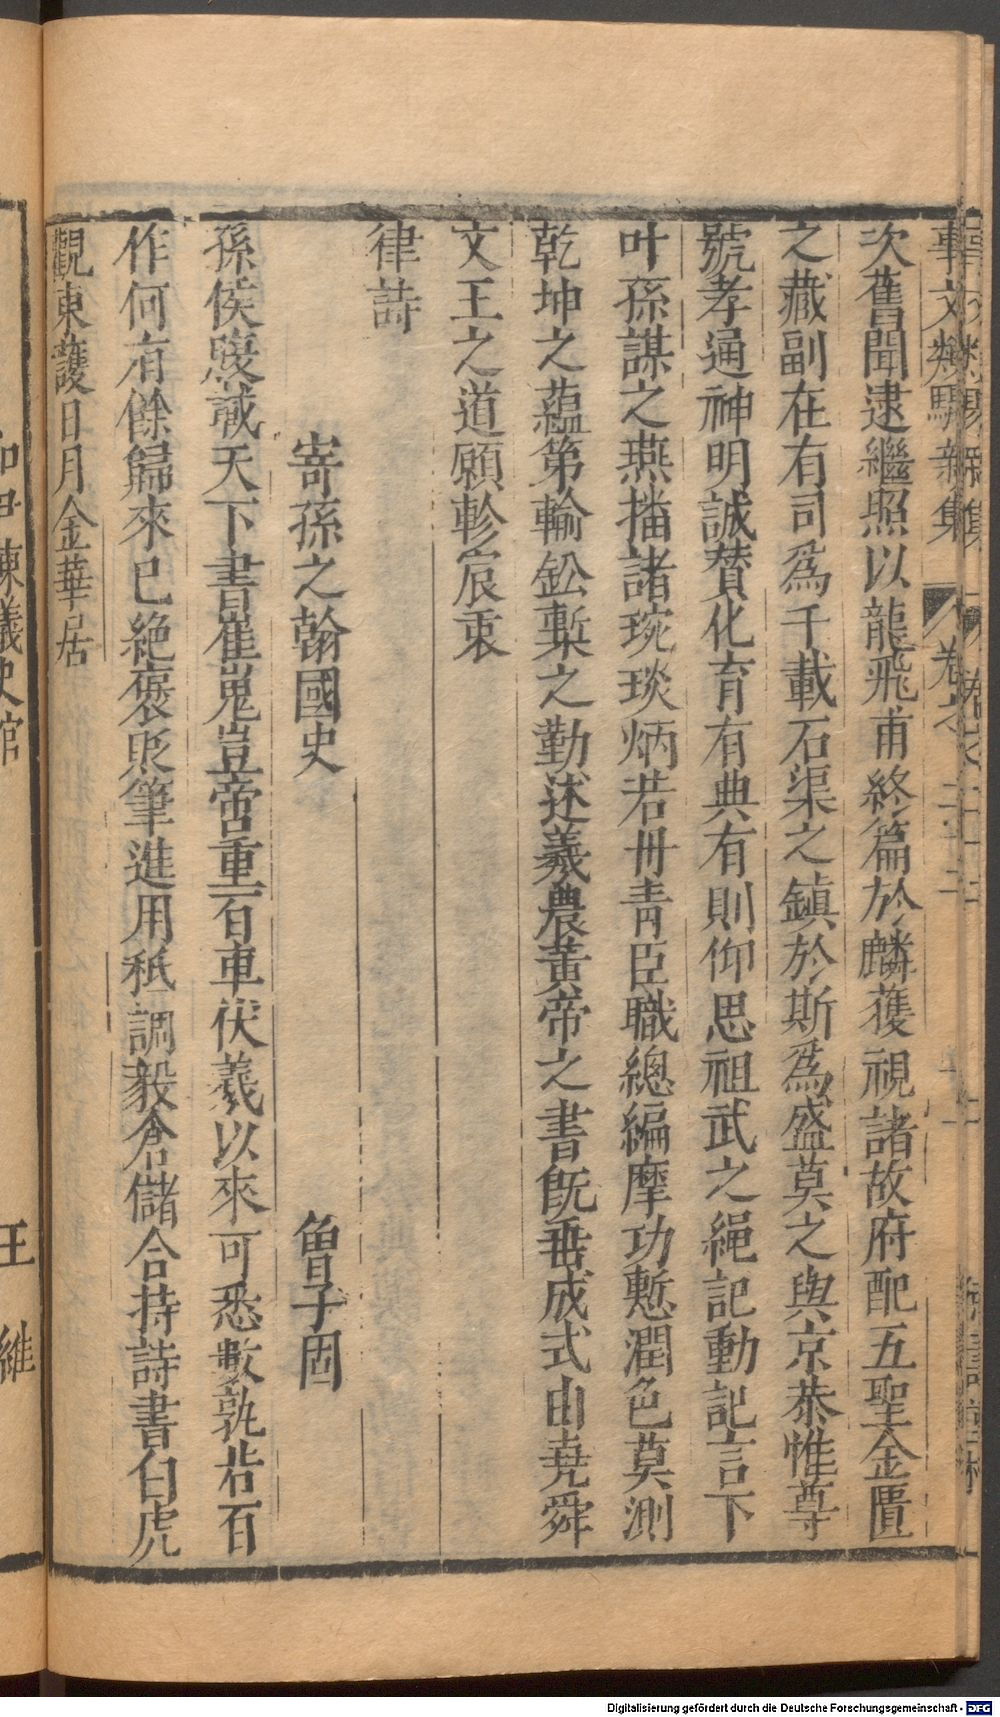 事文類聚新集 卷之二十二
次舊聞逮繼照以龍飛甫終篇於麟獲視諸故府配五聖金匱
之藏副在有司為千載石渠之鎮於斯為盛莫之與京恭惟尊
號孝通神明誠贊化育有典有則仰思祖武之繩記動記言下
叶孫謀之燕播諸琬琰炳若冊青臣職總編摩功慙潤色莫測
乾坤之蘊第輸鈆槧之勤述羲農黃帝之書旣垂成式由堯舜
文王之道願軫宸衷
律詩
寄孫之翰國史 魯子固
孫侯腹載天下書崔嵬豈啻重百車伏羲以來可悉數孰若百
作何有餘歸來已絶褒貶筆進用秪調毅倉儲合持詩書白虎
觀東護日月金華居
諫議史館 王維
Digitalisierung gefördert durch die Deutsche Forschungsgemeinschaft - DFG